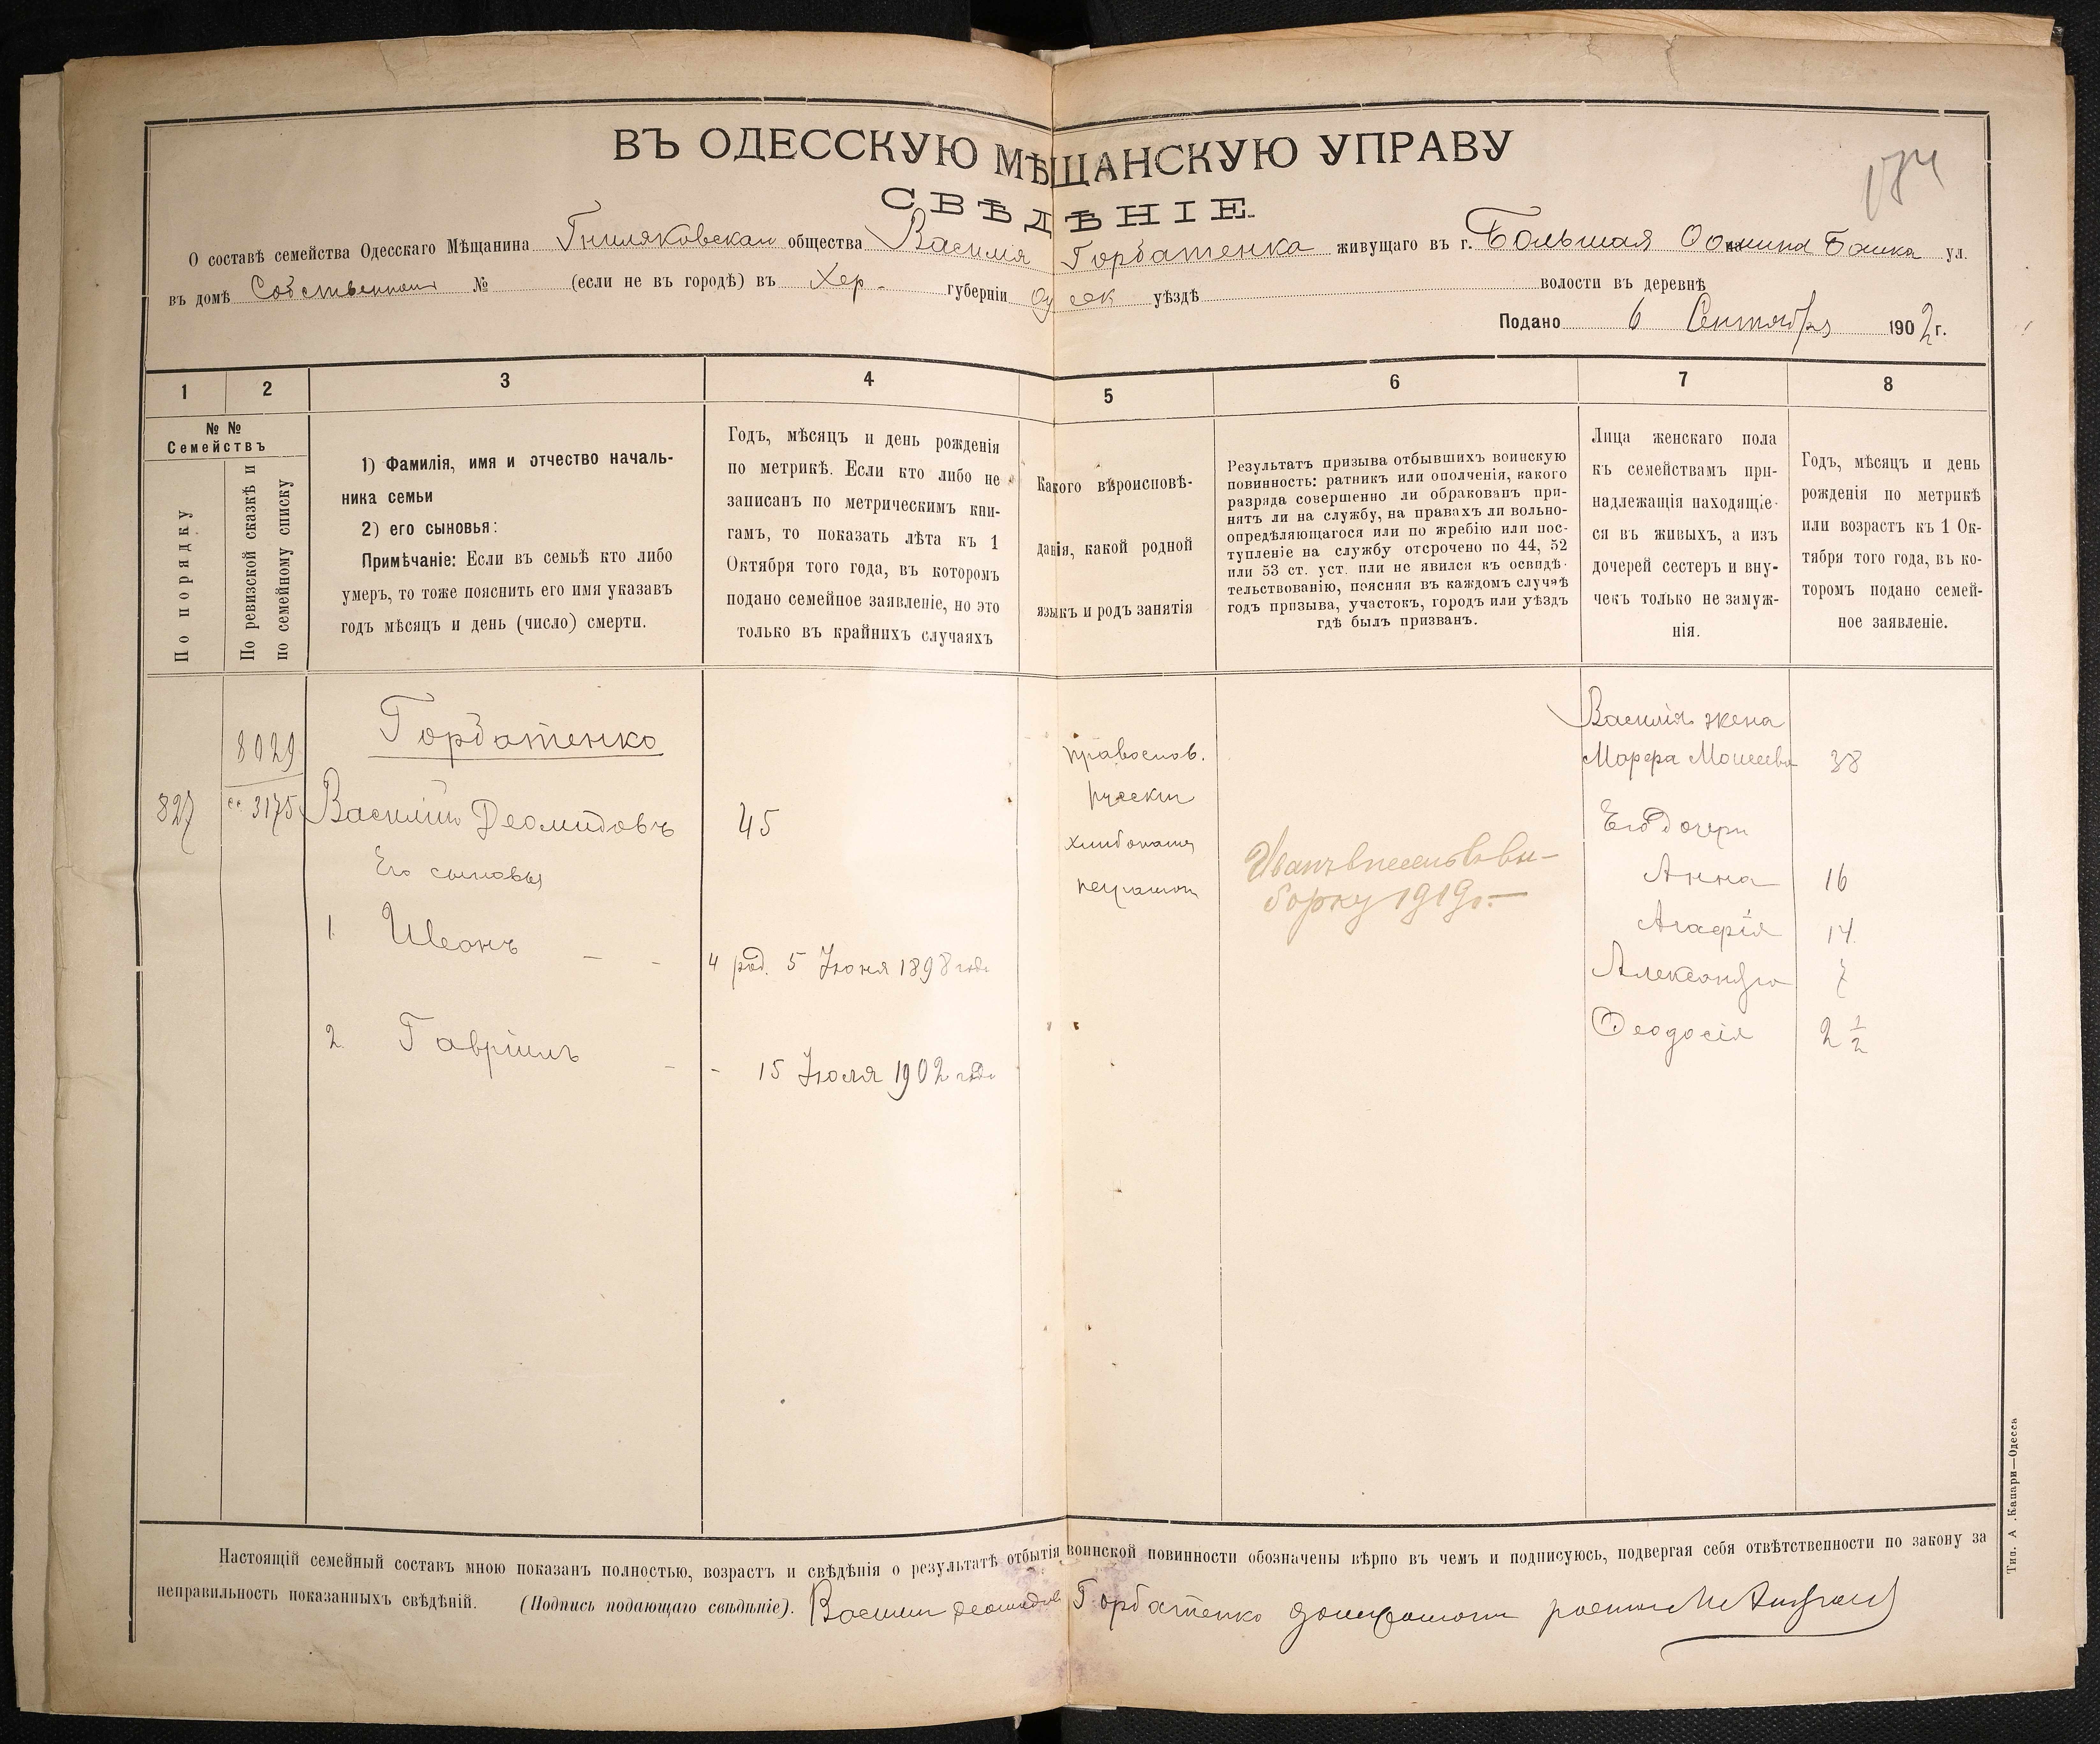 ВЪ ОДЕССКУЮ МѢЩАНСКУЮ УПРАВУ
СВѢДѢНІЕ.
О составѣ семейства Одесскаго Мѣщанина Гниляковскаго общества Василія Горбатенка живущаго въ г. Большая Башка ул.
въ домѣ Собственном № (если не въ городѣ) въ Хер. губерніи Одесск уѣздѣ волости въ деревнѣ
Подано 6 Сентября 1902 г.
1 2 3 4 5 6 7 8
№ № Семействъ
По порядку
По ревизской сказкѣ и по семейному списку
1) Фамилія, имя и отчество началь-
ника семьи
2) его сыновья:
Примѣчаніе: Если въ семьѣ кто либо
умеръ, то тоже пояснить его имя указавъ
годъ мѣсяцъ и день (число) смерти.
Годъ, мѣсяцъ и день рожденія
по метрикѣ. Если кто либо не
записанъ по метрическимъ кни-
гамъ, то показать лѣта къ 1
Октября того года, въ которомъ
подано семейное заявленіе, но это
только въ крайнихъ случаяхъ
Какого вѣроисповѣ-
данія, какой родной
языкъ и родъ занятія
Результатъ призыва отбывшихъ воинскую
повинность: ратникъ или ополченія, какого
разряда совершенно ли обракованъ при-
нятъ ли на службу, на правахъ ли вольно-
опредѣляющагося или по жребію или пос-
тупленіе на службу отсрочено по 44, 52
или 53 ст. уст. или не явился къ освидѣ-
тельствованію, поясняя въ каждомъ случаѣ
годъ призыва, участокъ, городъ или уѣздъ
гдѣ былъ призванъ.
Лица женскаго пола
къ семействамъ при-
надлежащія находящіе-
ся въ живыхъ, а изъ
дочерей сестеръ и вну-
чекъ только не замуж-
нія.
Годъ, мѣсяцъ и день
рожденія по метрикѣ
или возрастъ къ 1 Ок-
тября того года, въ ко-
торомъ подано семей-
ное заявленіе.
8029
Горбатенко
827 3175 Василій Деомидовъ 45
Его сыновья
1. Иванъ - - 4 род. 5 Іюня 1898 года
2. Гавріилъ - - 15 Іюля 1902 года
православ.
русскій
хлибопашец
неграмот
Иванъ внесенъ въ вы-
борку 1919 г.
Василія жена
Марфа Моисеева 38
Его дочери
Анна 16
Агафія 14.
Александра 7
Феодосія 2 1/2
Настоящій семейный составъ мною показанъ полностью, возрастъ и свѣдѣнія о результатѣ отбытія воинской повинности обозначены вѣрно въ чемъ и подписуюсь, подвергая себя отвѣтственности по закону за
неправильность показанныхъ свѣдѣній. (Подпись подающаго свѣдѣніе). Василий Деомидов Горбатенко
Тип. А. Капари—Одесса